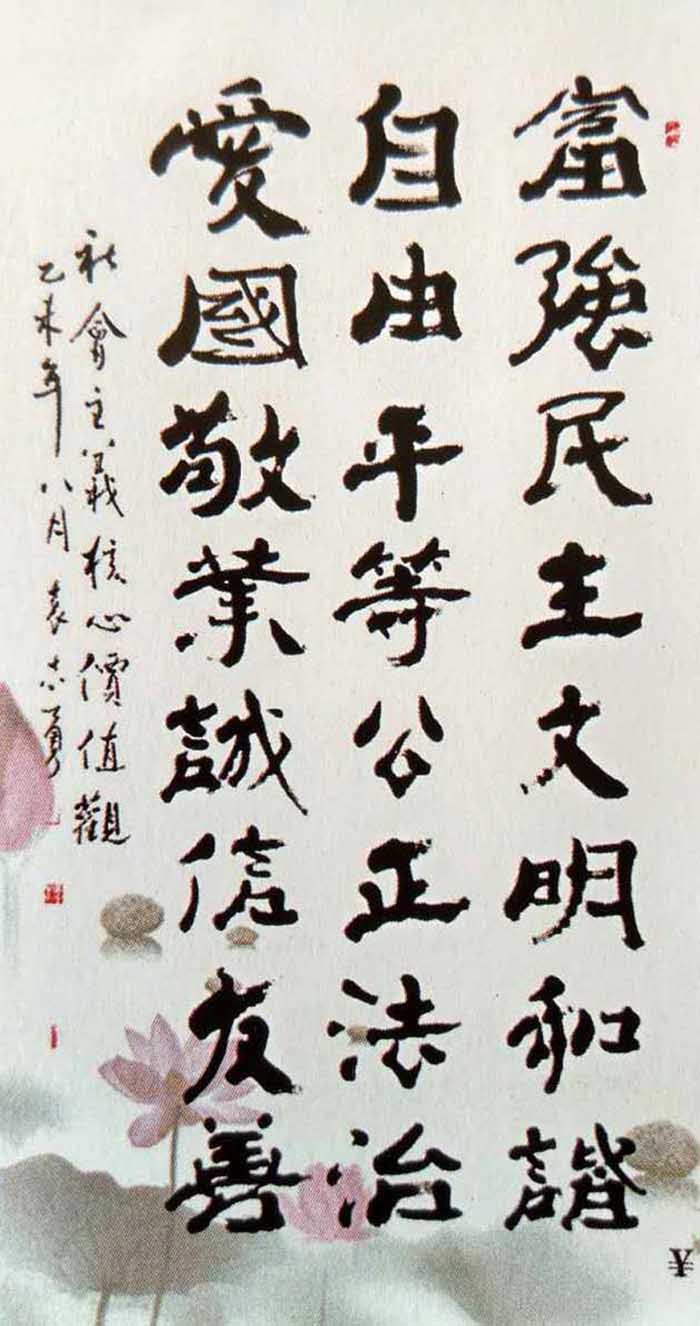 富強民主文明和諧
自由平等公正法治
愛國敬業誠信友善
社會主義核心價值觀
乙未年八月袁志勇
¥